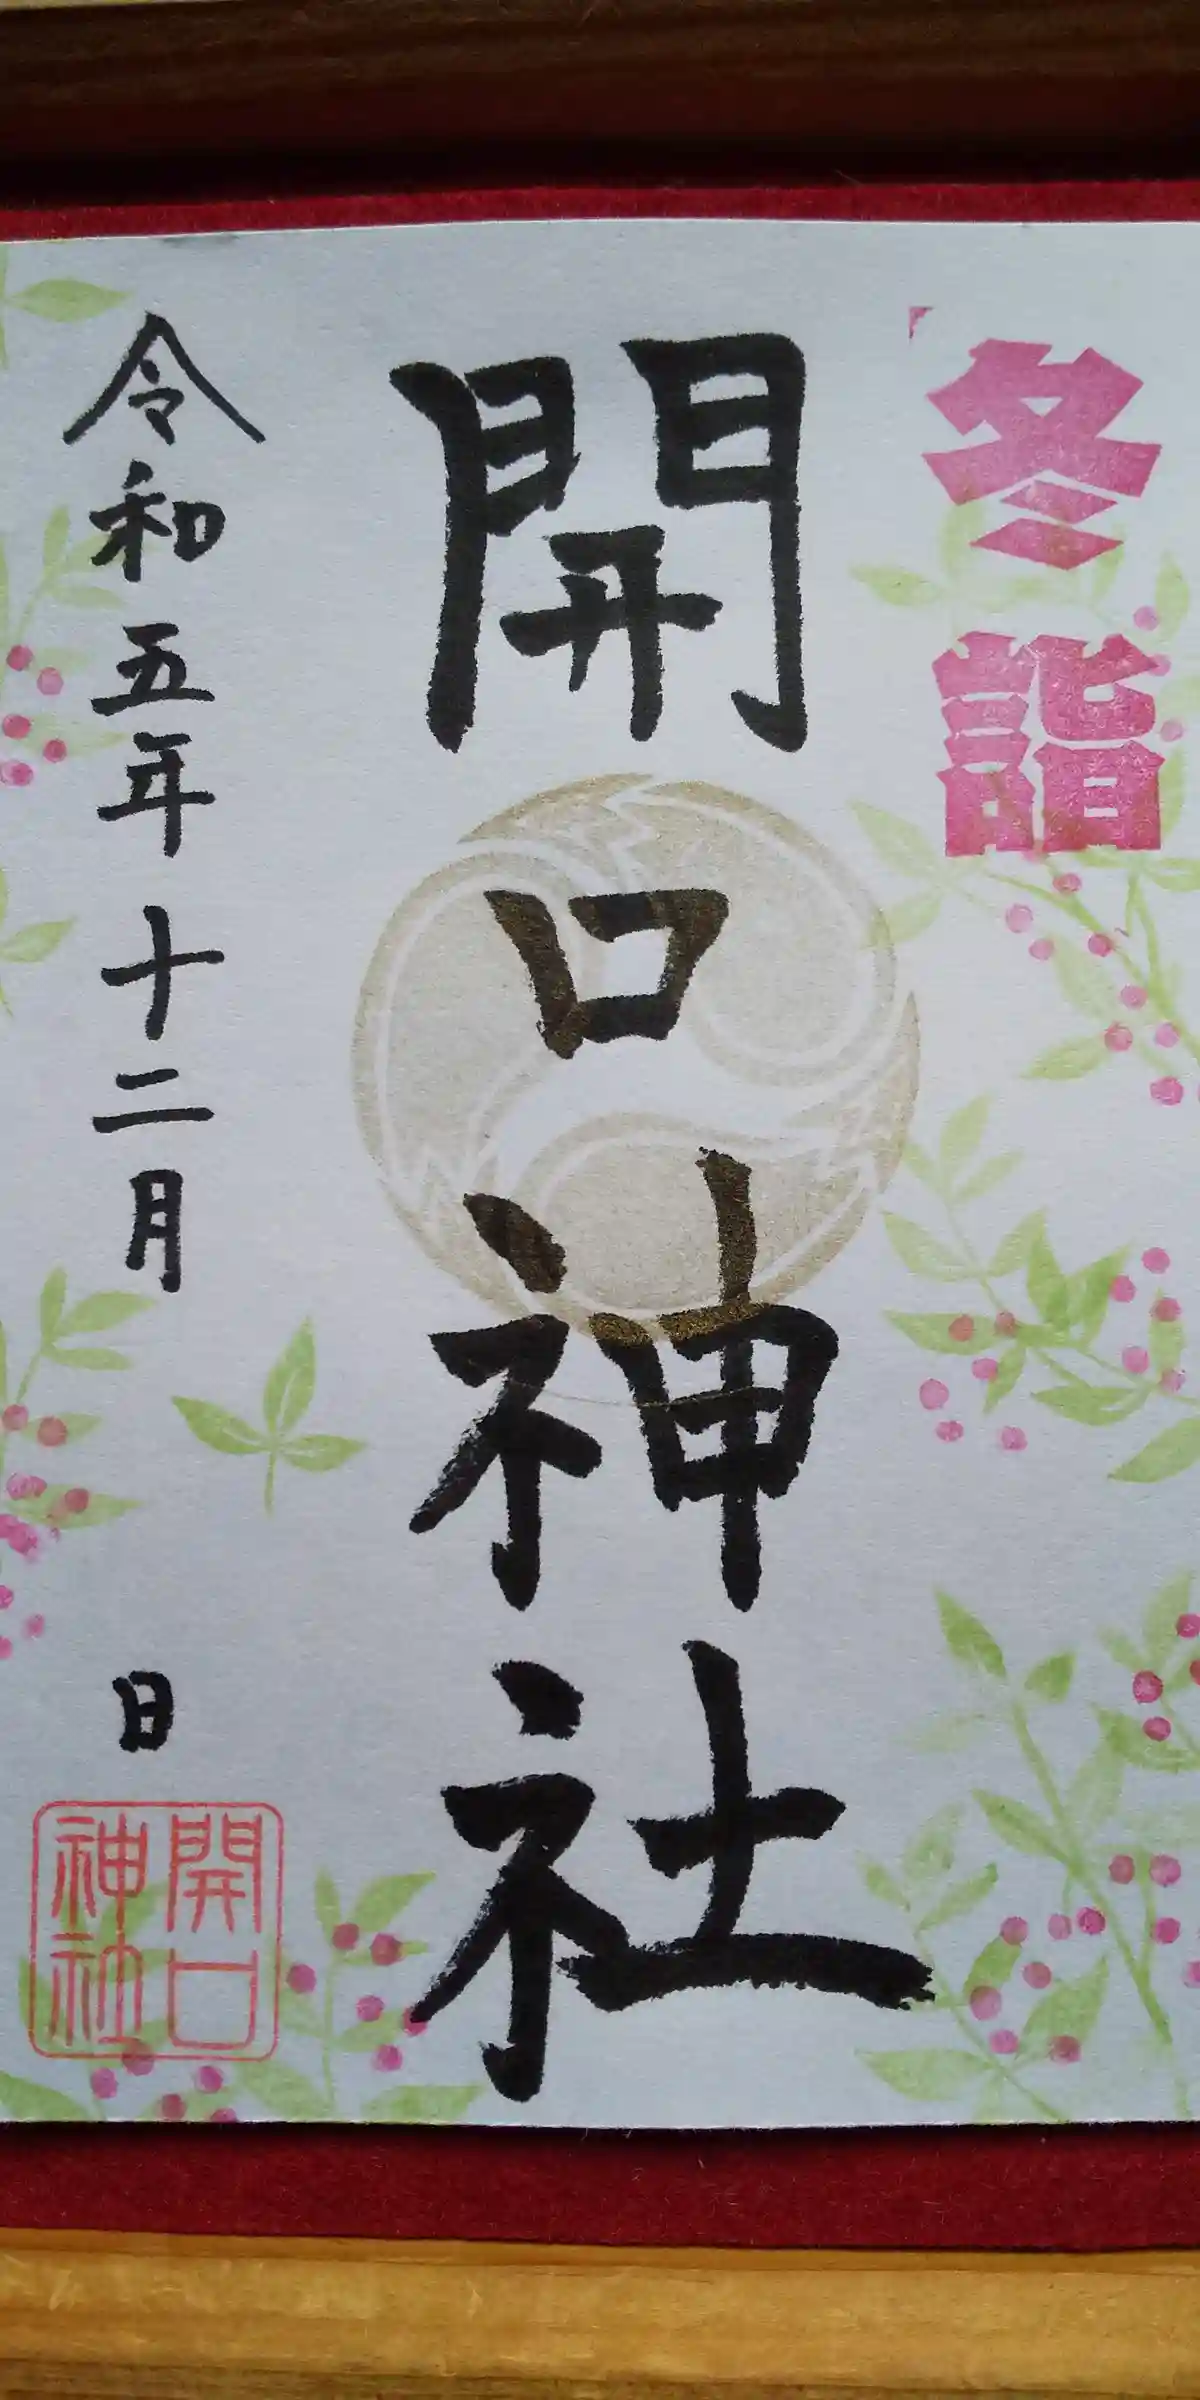 冬詣
開口神社
令和五年十二月 日
開口
神社